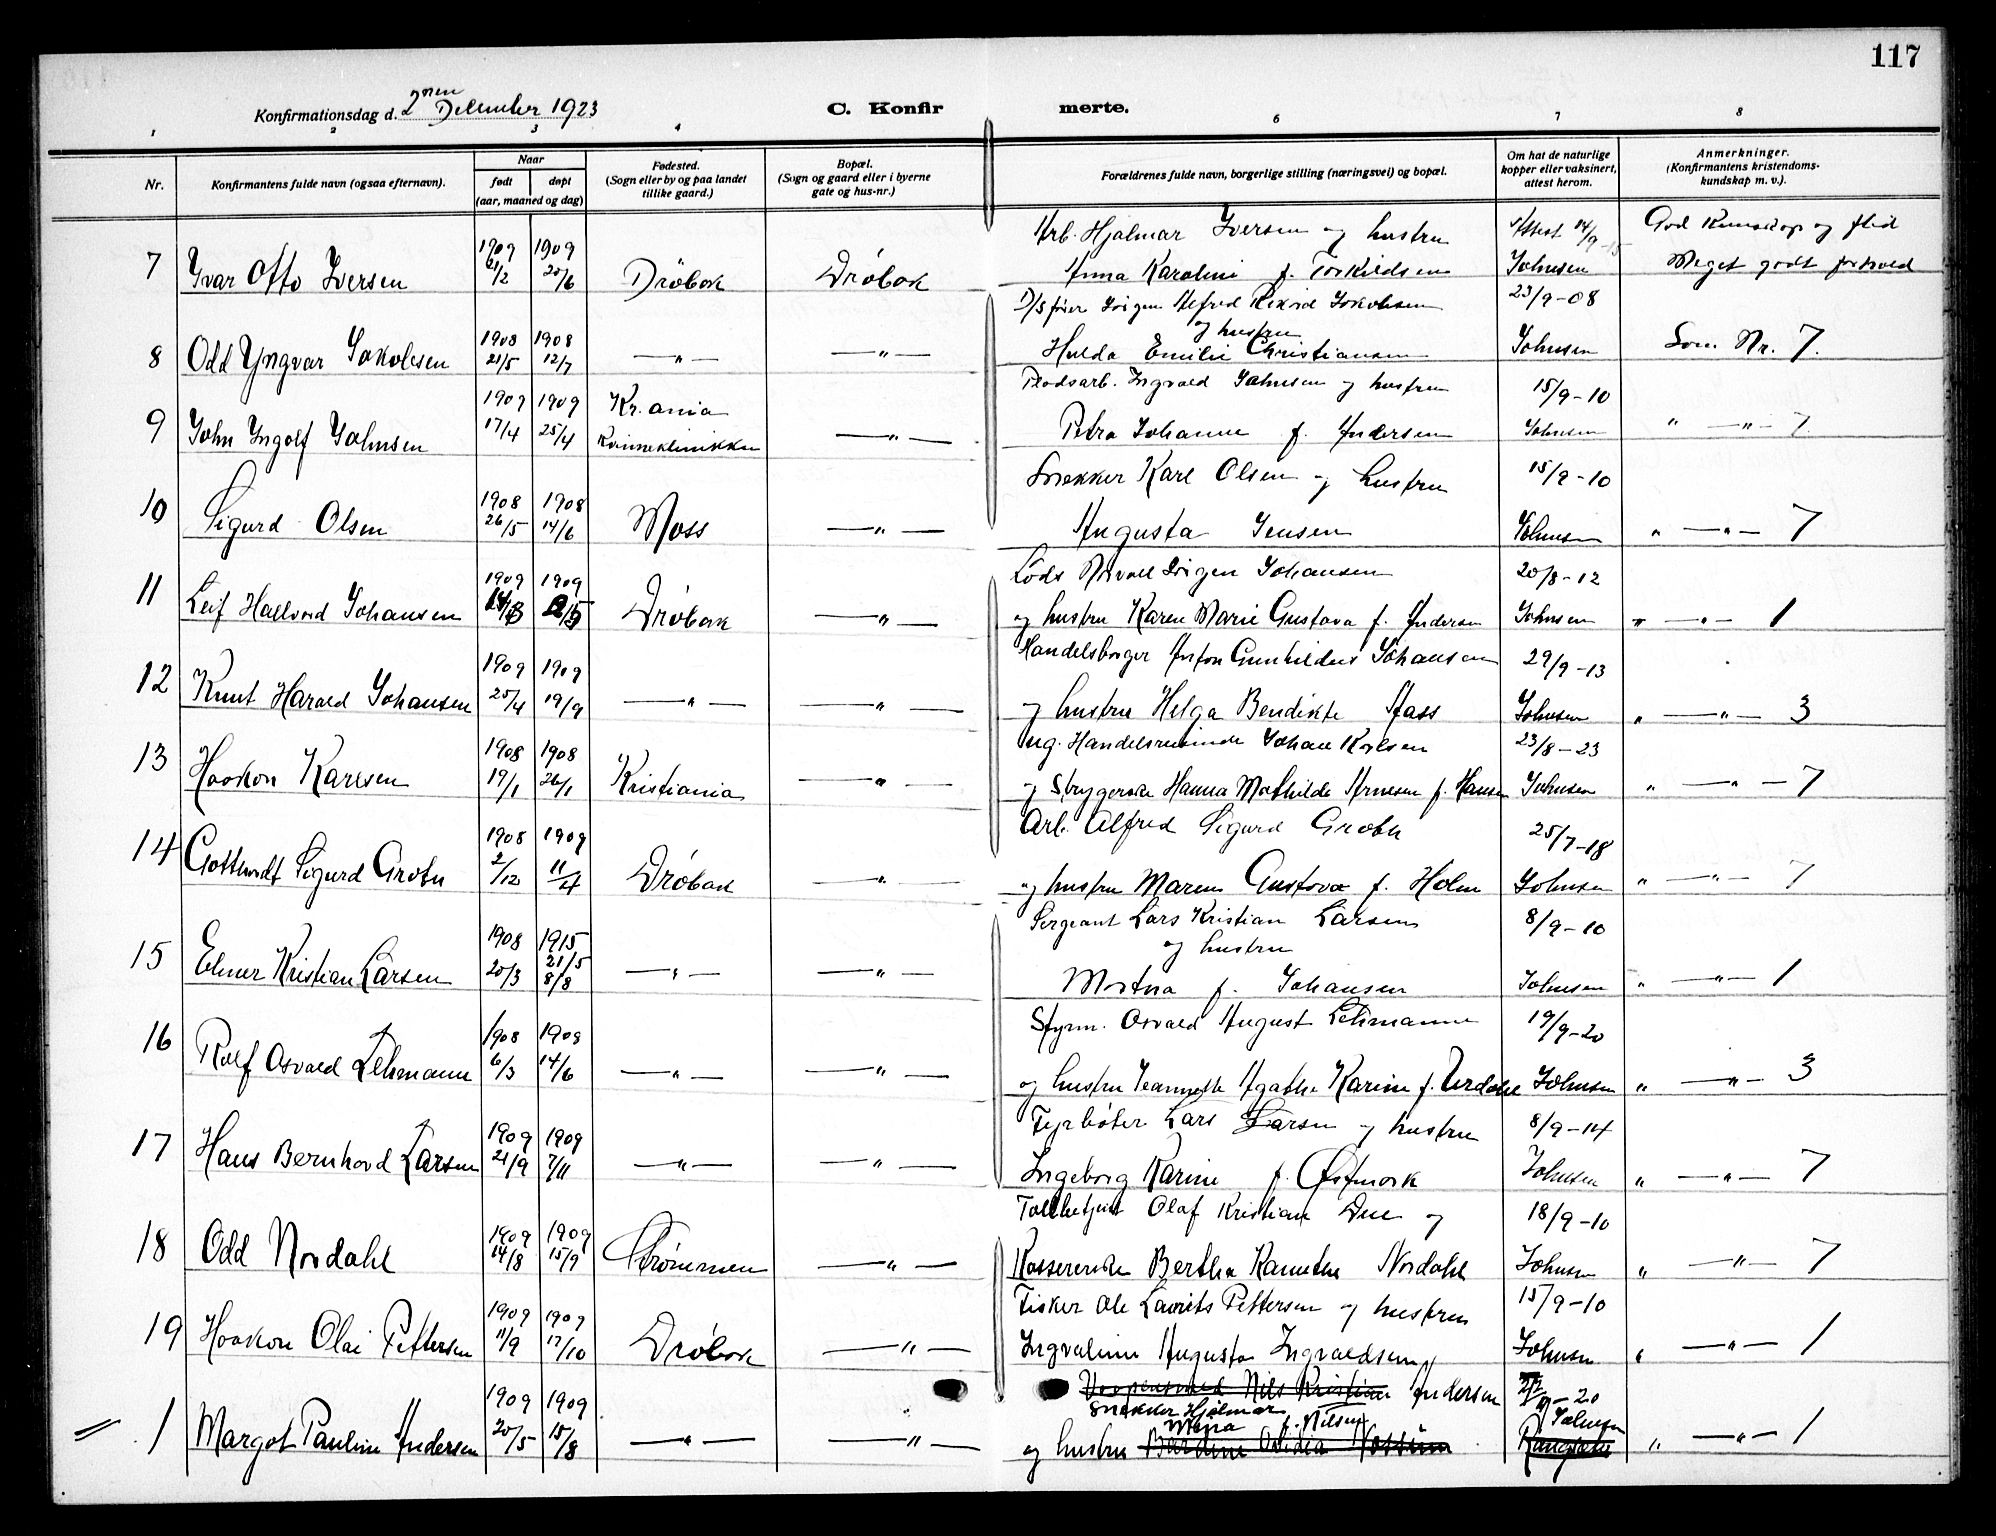 117
Konfirmationsdag d. 2nen December 1923 C. Konfirmerte.
1 2 3 4 6 7 8
Nr. Konfirmantens fulde navn (ogsaa efternavn). Naar født døpt (aar, maaned og dag) Fødested. (Sogn eller by og paa landet tillike gaard.) Bopæl. (Sogn og gaard eller i byerne gate og hus-nr.) Forældrenes fulde navn, borgerlige stilling (næringsvei) og bopæl. Om hat de naturlige kopper eller vaksinert, attest herom. Anmerkninger. (Konfirmantens kristendoms-kundskap m. v.).
Arb. Hjalmar Iversen og hustru Attest 14/9-15 God Kunnskap og flid
7 Ivar Otto Iversen 1909 21/2 1909 20/6 Drøbak Drøbak Anna Karoline f. Torkildsen Johnsen Meget godt forhold
D/S fører Jørgen Alfred Rikard Jakobsen 23/9-08
og hustru
8 Odd Yngvar Jakobsen 1908 21/5 1908 12/7 —"— —"— Hulda Emilie Christiansen Johnsen Som Nr. 7.
Pladsarb. Ingvald Johnsen og hustru 15/9-10
9 John Ingolf Johnsen 1909 17/4 1909 25/4 Kr.ania Kvinneklinikken —"— Petra Johanne f. Andersen Johnsen " —"— 7.
Snekker Karl Olsen og hustru 15/9-10
10 Sigurd Olsen 1908 26/5 1908 14/6 Moss —"— Augusta Jensen Johnsen " —"— 7
Lods Norvall Jørgen Johansen 20/8-12
11 Leif Hallvord Johansen 1909 1909 Drøbak —"— og hustru Karen Marie Gustava f. Andersen Johnsen " —"— 1
Handelsborger Anton Gunhildus Johansen 29/9-13
12 Knut Harald Johansen 1909 25/4 1909 19/9 —"— —"— og hustru Helga Bendikte Aass Johnsen " —"— 3
ug. Handelsreisende Johan Karlsen 23/8-23
13 Haakon Karlsen 1908 19/1 1908 26/1 Kristiania —"— og Strygerske Hanna Mathilde Arnesen f. Hansen Johnsen " —"— 7
Arb. Alfred Sigurd Grøtn 25/7-18
14 Sigurd Grøtn 1908 2/12 1909 11/4 Drøbak —"— og hustru Maren Gustava f. Holm Johnsen " —"— 7
Sergeant Lars Kristian Larsen 8/9-10
og hustru
15 Elmer Kristian Larsen 1908 20/3 1915 21/5 8/8 —"— —"— Martha f. Johansen Johnsen " —"— 1
Styrm. Osvald August Lehmann 19/9-20
16 Rolf Osvald Lehmann 1908 6/3 1908 14/6 —"— —"— og hustru Jeannette Agathe Karine f. Urdahl Johnsen " —"— 3
Fyrbøter Lars Larsen og hustru 8/9-14
17 Hans Bernhard Larsen 1909 21/9 1909 7/11 —"— —"— Ingeborg Karine f. Østmork Johnsen " —"— 7
Tollbetjent Olaf Kristian Due og 18/9-10
18 Odd Nordahl 1909 14/8 1909 15/9 Strømmen —"— Kassererske Bertha Kanuthe Nordahl Johnsen " —"— 7
Fisker Ole Laurits Pettersen og hustru 15/9-10
19 Haakon Olai Pettersen 1909 11/9 1909 17/10 Drøbak —"— Ingvaline Augusta Ingvaldsen Johnsen " —"— 1
Nils Kristian Andersen
Snekker Hjalmar
Johnsen
f. Nilsen
1 Margot Pauline Andersen 1909 20/5 1909 15/8 —"— —"— og hustru " —"— 1